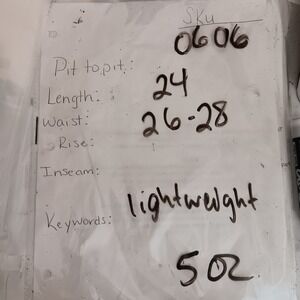 SKU
0606
Pit to pit:
Length: 24
Waist: 26-28
Rise:
Inseam:
Keywords: lightweight
5 oz